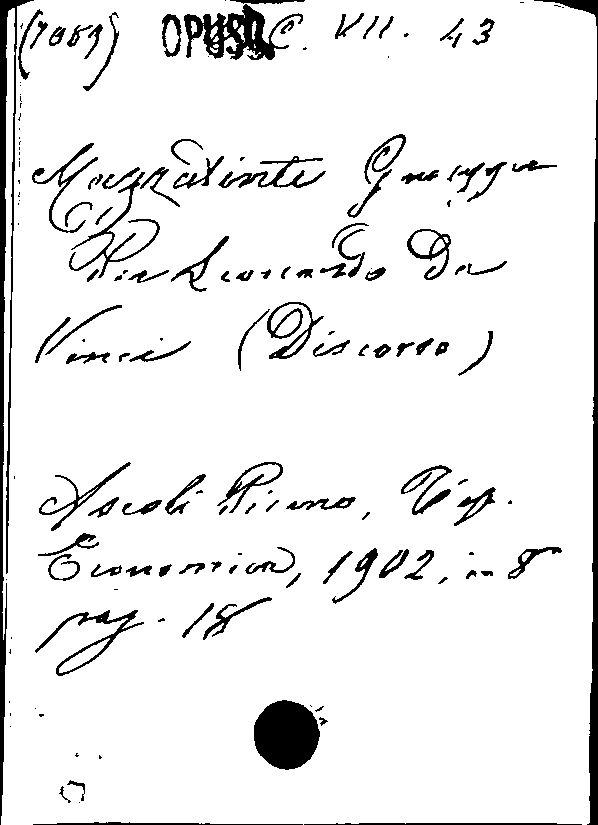 (7089) OPUSC. C. VII. 43
Mezzatinti Giuseppe
Per Leonardo Da
Vinci (Discorso)
Ascoli Piceno, Tip.
Economica, 1902, in 8
pag. 18